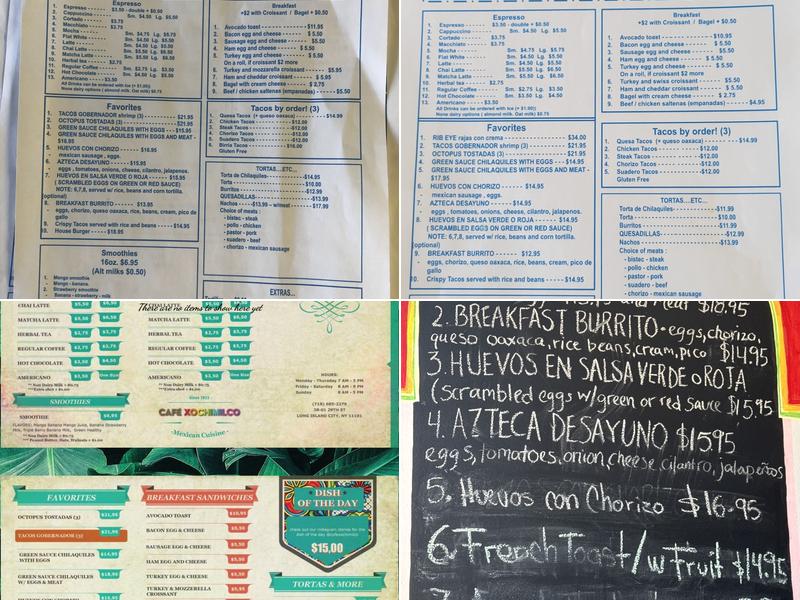 Espresso
1. Espresso $3.50 - double + $0.50
2. Cappuccino Sm. $4.50 Lg. $5.50
3. Cortado $3.75
4. Macchiato $3.75
5. Mocha Sm. $4.75 Lg. $5.75
6. Flat White Sm. $4.50 Lg. $5.50
7. Latte
8. Chai Latte
9. Matcha Latte
10. Herbal tea - - $2.75
11. Regular Coffee
12. Hot Chocolate
13. Americano - - - - $3.50
All Drinks can be Ordered with ice (+ $1.00)
None dairy options ( almond milk. Oat milk) $0.75
Favorites
1. TACOS GOBERNADOR shrimp (3) - - - $21.95
2. OCTOPUS TOSTADAS (3) - - - - - $21.95
3. GREEN SAUCE CHILAQUILES WITH EGGS - - $15.95
4. GREEN SAUCE CHILAQUILES WITH EGGS AND MEAT -
$18.95
5. HUEVOS CON CHORIZO - - - - $16.95
- mexican sausage , eggs.
6. AZTECA DESAYUNO - - - - $15.95
- eggs , tomatoes, onions, cheese, cilantro, jalapenos.
7. HUEVOS EN SALSA VERDE O ROJA - - - - $15.95
( SCRAMBLED EGGS ON GREEN OR RED SAUCE)
NOTE: 6,7,8, served w/ rice, beans and corn tortilla.
(optional)
8. BREAKFAST BURRITO - - - - $13.95
- eggs, chorizo, queso oaxaca, rice, beans, cream, pico de
gallo
9. Crispy Tacos served with rice and beans - - - - $14.95
10. House Burger - - - $18.95
Smoothies
16oz. $6.95
(Alt milks $0.50)
1. Mango smoothie
2. Mango - banana.
3. Strawberry smoothie
4. Strawberry - Banana - milk
Breakfast
+$2 with Croissant / Bagel + $0.50
1. Avocado toast - - - - - $11.95
2. Bacon egg and cheese - - - - $ 5.50
3. Sausage egg and cheese - - - - $ 5.50
4. Ham egg and cheese - - - - $ 5.50
5. Turkey egg and cheese - - - - $ 5.50
On a roll, if croissant $2 more
6. Turkey and mozzerella croissant - - - - $5.95
7. Ham and cheddar croissant - - - - $ 5.95
8. Bagel with cream cheese - - - - $ 2.75
9. Beef / chicken saltenas (empanadas) - - - - $5.50
Tacos by order! (3)
1. Quesa Tacos (+ queso oaxaca) - - - - $14.99
2. Chicken Tacos - - - - $12.00
3. Steak Tacos - - - - $12.00
4. Chorizo Tacos - - - - $12.00
5. Suadero Tacos - - - - $12.00
6. Birria Tacos - - - - $16.00
Gluten Free
TORTAS....ETC...
Torta de Chilaquiles - - - - $14.95
Torta - - - - $10.95
Burritos - - - - $12.99
QUESADILLAS - - - - $12.99
Nachos - - - - $13.99 - w/meat - - - - $17.99
Choice of meats :
- bistec - steak
- pollo - chicken
- pastor - pork
- suadero - beef
- chorizo - mexican sausage
EXTRAS...
Espresso
1. Espresso $3.50 - double + $0.50
2. Cappuccino Sm. $4.50 Lg. $5.50
3. Cortado - - $3.75
4. Macchiato $3.75
5. Mocha Sm. $4.75 Lg. $5.75
6. Flat White Sm. $4.50 Lg. $5.50
7. Latte
8. Chai Latte
9. Matcha Latte
10. Herbal tea - - $2.75
11. Regular Coffee Sm. $2.75 Lg. $3.00
12. Hot Chocolate Sm. $3.50 Lg. $4.50
13. Americano - - - $3.50
All Drinks can be Ordered with ice (+ $1.00)
None dairy options ( almond milk. Oat milk) $0.75
Favorites
1. RIB EYE rajas con crema - - - - $34.00
2. TACOS GOBERNADOR shrimp (3) - - - - $21.95
3. OCTOPUS TOSTADAS (3) - - - - $21.95
4. GREEN SAUCE CHILAQUILES WITH EGGS - - $14.95
5. GREEN SAUCE CHILAQUILES WITH EGGS AND MEAT -
$17.95
6. HUEVOS CON CHORIZO - - - - $14.95
- mexican sausage , eggs.
7. AZTECA DESAYUNO - - - - $14.95
- eggs , tomatoes, onions, cheese, cilantro, jalapenos.
8. HUEVOS EN SALSA VERDE O ROJA - - - - $14.95
( SCRAMBLED EGGS ON GREEN OR RED SAUCE)
NOTE: 6,7,8, served w/ rice, beans and corn tortilla.
(optional)
9. BREAKFAST BURRITO - - - - $12.95
- eggs, chorizo, queso oaxaca, rice, beans, cream, pico de
gallo
10. Crispy Tacos served with rice and beans - - - - $14.95
Breakfast
+$2 with Croissant / Bagel + $0.50
1. Avocado toast - - - - $10.95
2. Bacon egg and cheese - - - - $ 5.50
3. Sausage egg and cheese - - - - $ 5.50
4. Ham egg and cheese - - - - $ 5.50
5. Turkey egg and cheese - - - - $ 5.50
On a roll, if croissant $2 more
6. Turkey and swiss croissant - - - - $ 5.50
7. Ham and cheddar croissant - - - - $ 5.50
8. Bagel with cream cheese - - - - $ 2.75
9. Beef / chicken saltenas (empanadas) - - - - $4.95
Tacos by order! (3)
1. Quesa Tacos (+ queso oaxaca) - - - - $14.99
2. Chicken Tacos - - - - $12.00
3. Steak Tacos - - - - $12.00
4. Chorizo Tacos - - - - $12.00
5. Suadero Tacos - - - - $12.00
Gluten Free
TORTAS....ETC...
Torta de Chilaquiles - - - - $11.99
Torta - - - - $10.00
Burritos - - - - $11.99
QUESADILLAS - - - - $12.99
Nachos - - - - $13.99
Choice of meats :
- bistec - steak
- pollo - chicken
- pastor - pork
- suadero - beef
- chorizo - mexican sausage
There are no items to show here yet
CHAI LATTE $5.50 $6.50
MATCHA LATTE $5.50 $6.50
HERBAL TEA $2.75 $2.75
REGULAR COFFEE $2.75 $3.00
HOT CHOCOLATE $3.50 $4.50
AMERICANO $3.50 One Size
** Non Dairy Milk + $0.75
**Extra shot + $1.00
CHAI LATTE $5.50 $6.50
MATCHA LATTE $5.50 $6.50
HERBAL TEA $2.75 $2.75
REGULAR COFFEE $2.75 $3.00
HOT CHOCOLATE $3.50 $4.50
AMERICANO $3.50 One Size
** Non Dairy Milk + $0.75
**Extra shot + $1.00
SMOOTHIES
SMOOTHIE $6.95
FLAVORS: Mango Banana Mango Juice, Banana Strawberry
Milk, Triple Berry Banana Milk, Green Healthy
** Non Dairy Milk + $0.75
** Peanut Butter, Date, Walnuts + $1.00
Since 2021
CAFÉ XOCHIMILCO
- Mexican Cuisine -
HOURS:
Monday - Thursday 8 AM - 5 PM
Friday - Saturday 8 AM - 8 PM
Sunday 8 AM - 5 PM
(718) 685-2276
38-01 29TH ST
LONG ISLAND CITY, NY 11101
FAVORITES
OCTOPUS TOSTADAS (3) $21.95
TACOS GOBERNADOR (3) $21.95
GREEN SAUCE CHILAQUILES
WITH EGGS $14.95
GREEN SAUCE CHILAQUILES
W/ EGGS & MEAT $18.95
HUEVOS CON CHORIZO
BREAKFAST SANDWICHES
AVOCADO TOAST $10.95
BACON EGG & CHEESE $5.50
SAUSAGE EGG & CHEESE $5.50
HAM EGG AND CHEESE $5.50
TURKEY EGG & CHEESE $5.50
TURKEY & MOZZARELLA
CROISSANT
DISH
OF THE DAY
check out our instagram stories for the
dish of the day @cafexochimilco
$15.00
TORTAS & MORE
$18.95
2. BREAKFAST BURRITO • eggs, chorizo,
queso oaxaca, rice beans, cream, pico $14.95
3. HUEVOS EN SALSA VERDE o ROJA
(Scrambled eggs w/green or red sauce $15.95
4. AZTECA DESAYUNO $15.95
eggs, tomatoes, onion, cheese cilantro, jalapeños
5. Huevos con Chorizo $16.95
6 French Toast/w Fruit $14.95